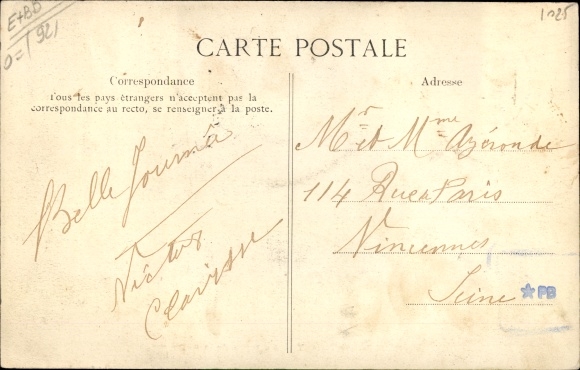 E+BD
0=1921
1025
CARTE POSTALE
Correspondance
Tous les pays étrangers n'acceptent pas la
correspondance au recto, se renseigner à la poste.
Belle Journée
Victor
Clarisse
Adresse
Mr et Mme Azéronde
114 Rue de Paris
Vincennes
Seine
PB